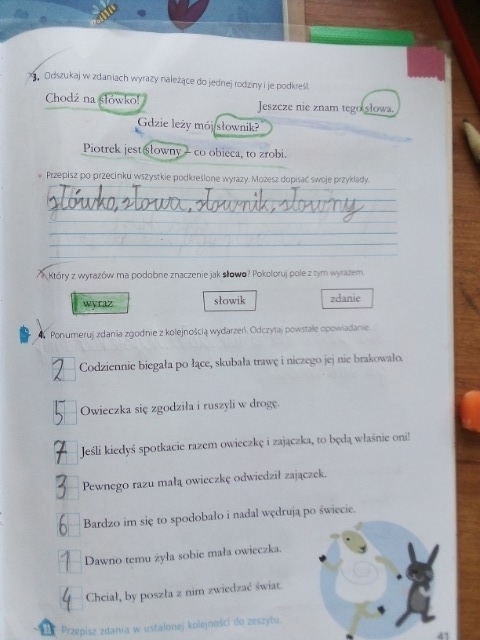 3. Odszukaj w zdaniach wyrazy należące do jednej rodziny i je podkreśl.
Chodź na słówko!
Jeszcze nie znam tego słowa.
Gdzie leży mój słownik?
Piotrek jest słowny – co obieca, to zrobi.
Przepisz po przecinku wszystkie podkreślone wyrazy. Możesz dopisać swoje przykłady.
słówko, słowa, słownik, słowny
Który z wyrazów ma podobne znaczenie jak słowo? Pokoloruj pole z tym wyrazem.
wyraz słowik zdanie
4. Ponumeruj zdania zgodnie z kolejnością wydarzeń. Odczytaj powstałe opowiadanie.
2 Codziennie biegała po łące, skubała trawę i niczego jej nie brakowało.
5 Owieczka się zgodziła i ruszyli w drogę.
7 Jeśli kiedyś spotkacie razem owieczkę i zajączka, to będą właśnie oni!
3 Pewnego razu małą owieczkę odwiedził zajączek.
6 Bardzo im się to spodobało i nadal wędrują po świecie.
1 Dawno temu żyła sobie mała owieczka.
4 Chciał, by poszła z nim zwiedzać świat.
Przepisz zdania w ustalonej kolejności do zeszytu.
41